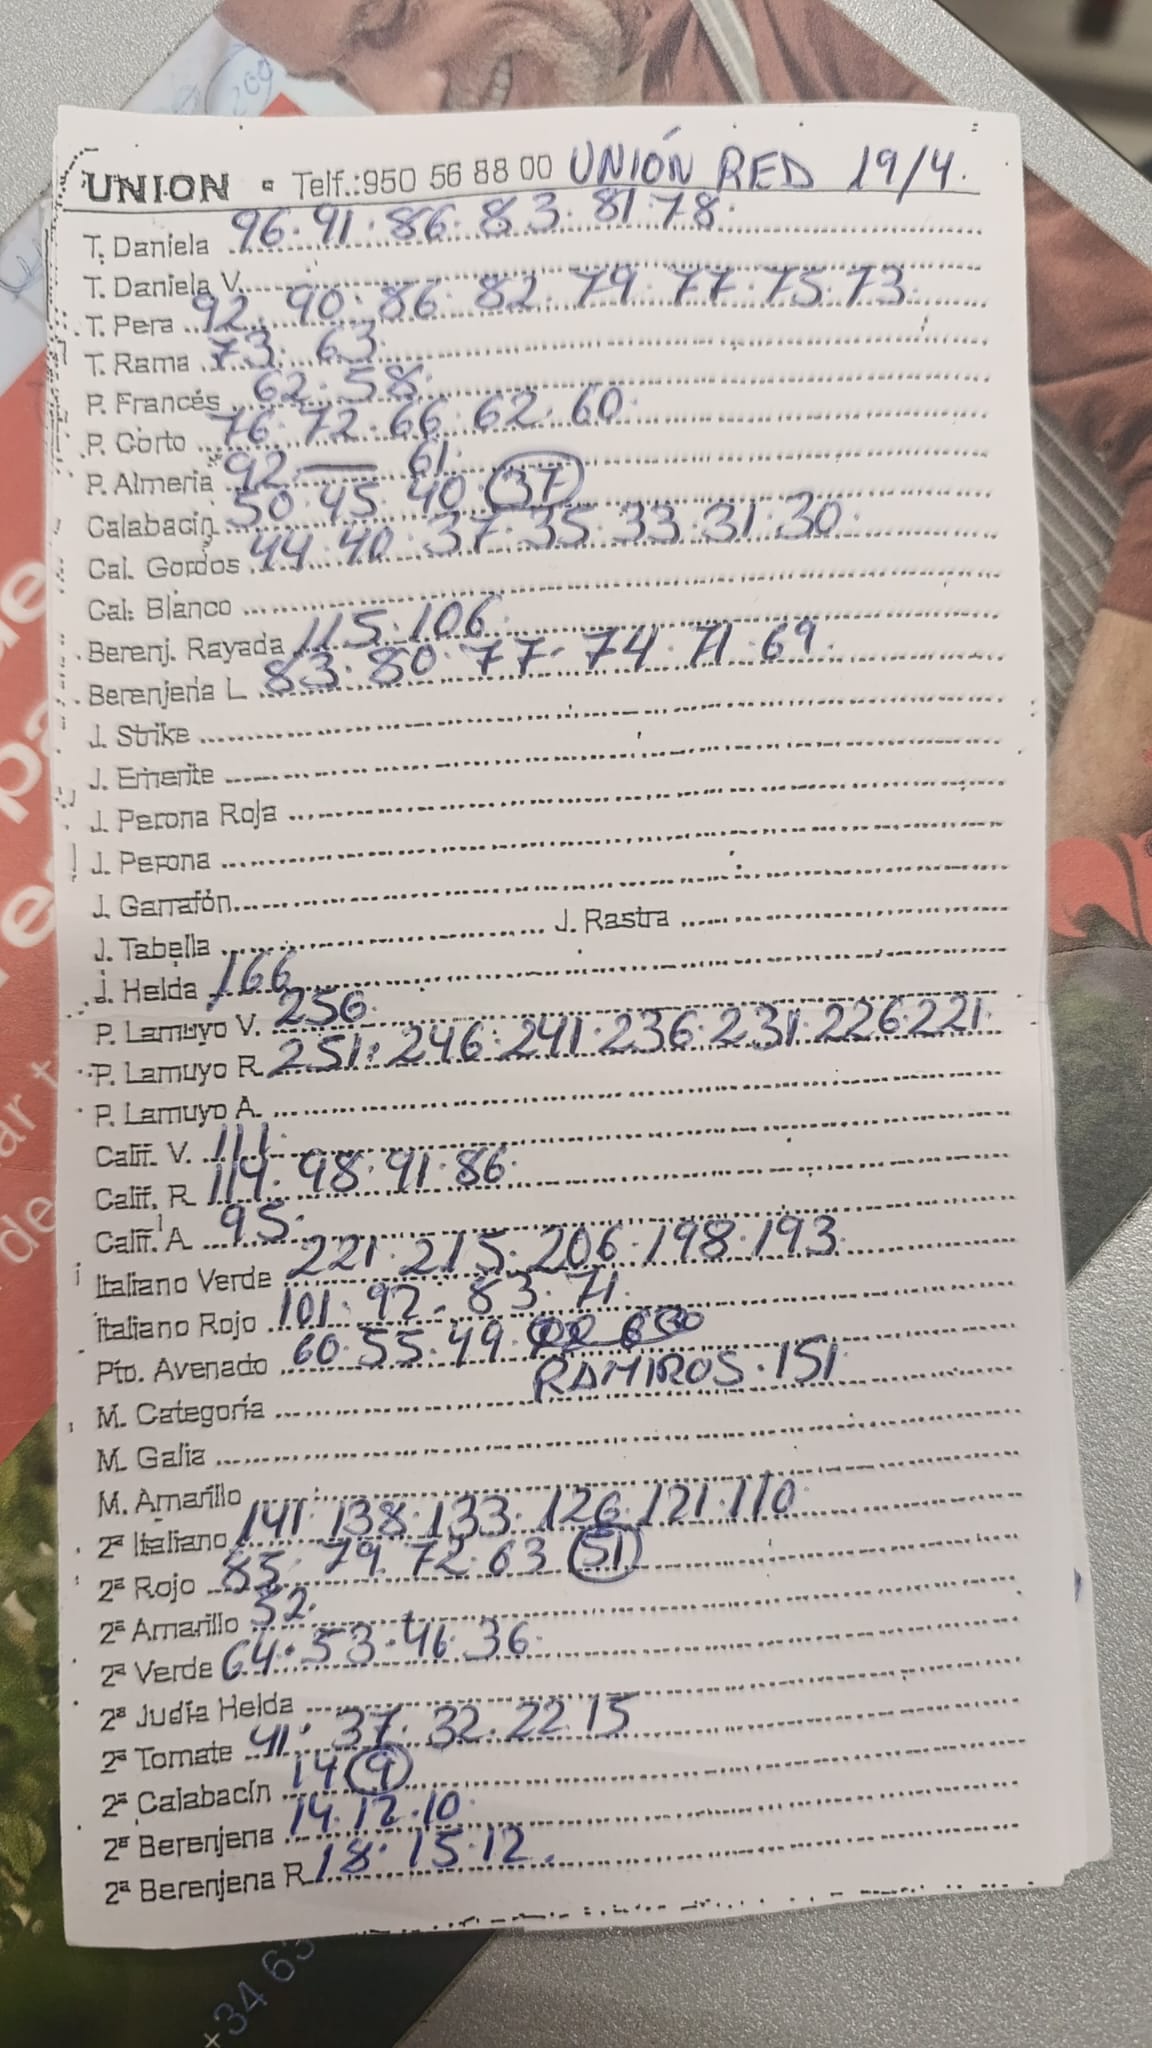 UNION - Telf.:950 56 88 00 UNIÓN RED 19/4.
T. Daniela 96.91.86.83.81.78.
T. Daniela V.
T. Pera 92.90.86.82.79.77.75.73.
T. Rama 73.63.
P. Francés 62.58.
P. Corto 76.72.66.62.60.
P. Almeria 92.— 61.
Calabacín 50.45.40.37
Cal. Gordos 44.40.37.35.33.31.30.
Cal. Blanco
Berenj. Rayada 115.106.
Berenjena L 83.80.77.74.71.69.
J. Strike
J. Emerite
J. Perona Roja
J. Perona
J. Garrafón
J. Tabella J. Rastra
J. Helda 166
P. Lamuyo V. 256.
P. Lamuyo R. 251.246.241.236.231.226.221.
P. Lamuyo A.
Calif. V. 111.
Calif. R 114.98.91.86.
Calif. A 95.
Italiano Verde 221.215.206.198.193.
Italiano Rojo 101.92.83.71.
Pto. Avenado 60.55.49.
RAMIROS.151.
M. Categoría
M. Galia
M. Amarillo
2ª Italiano 141.138.133.126.121.110.
2ª Rojo 85.79.72.63 51
2ª Amarillo 52.
2ª Verde 64.53.46.36.
2ª Judía Helda
2ª Tomate 41.37.32.22.15
2ª Calabacín 14 9
2ª Berenjena 14.12.10.
2ª Berenjena R 18.15.12.
209
+34 63